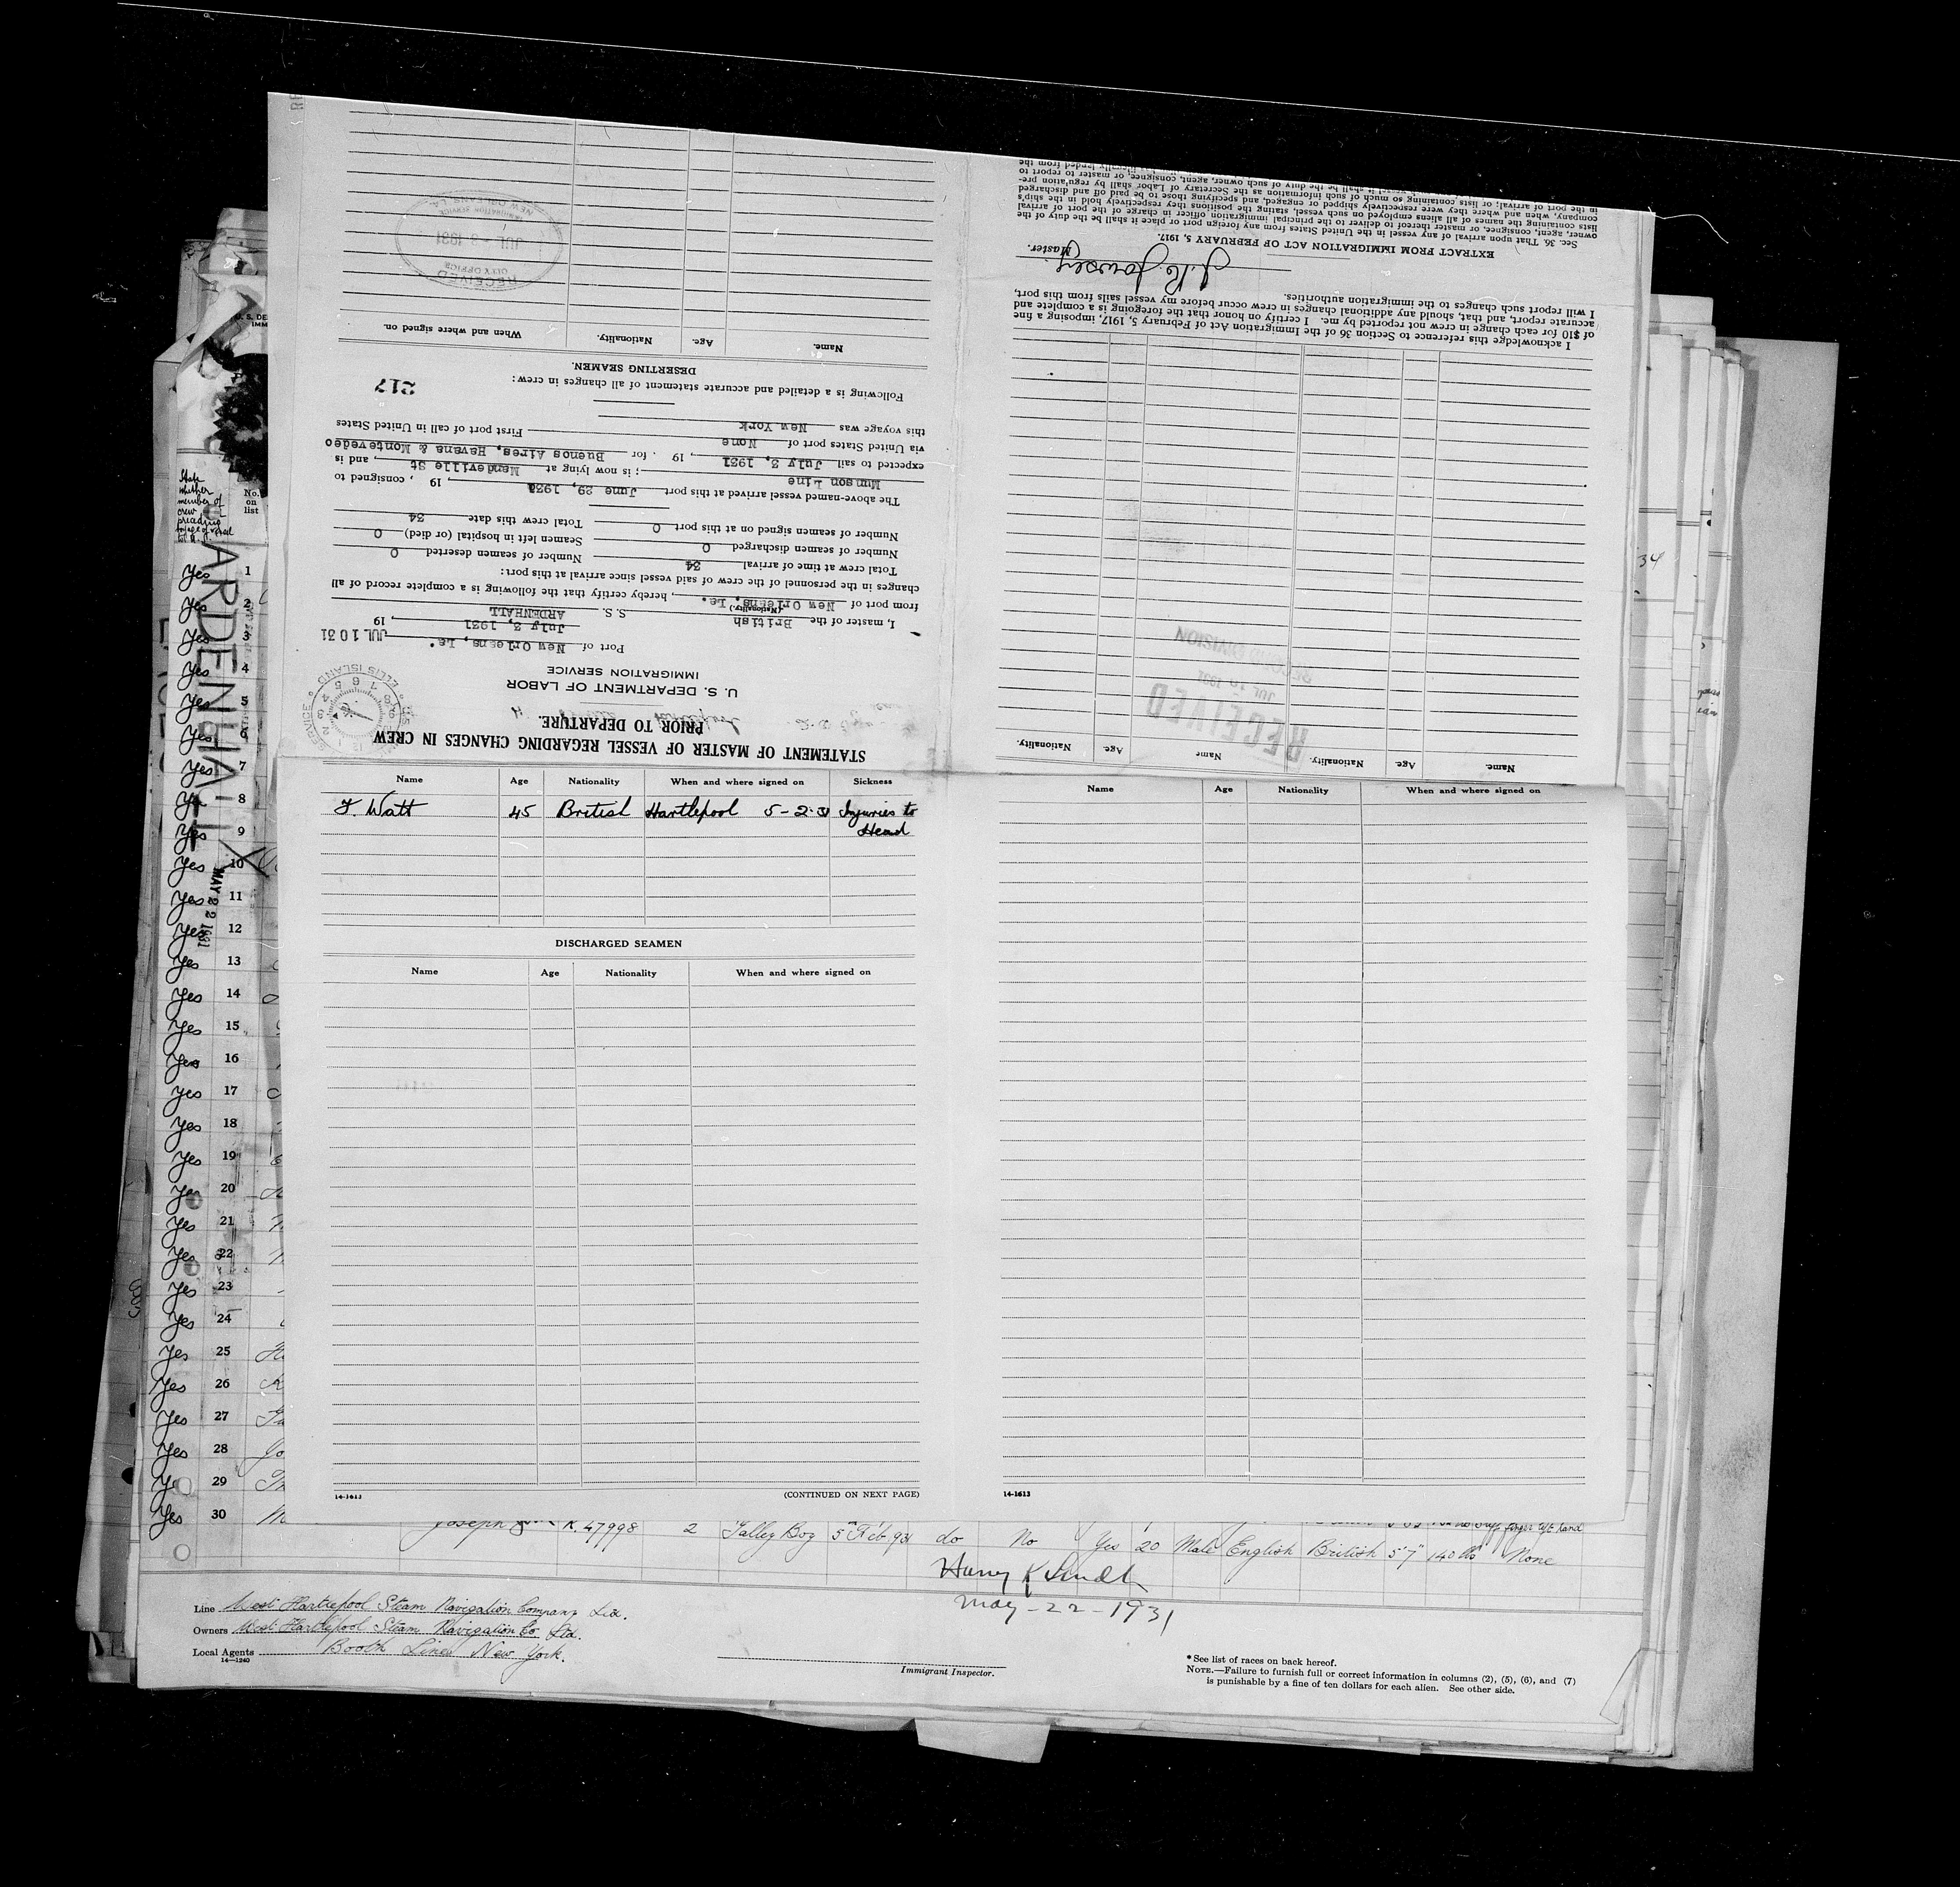 STATEMENT OF MASTER OF VESSEL REGARDING CHANGES IN CREW
PRIOR TO DEPARTURE.
U. S. DEPARTMENT OF LABOR
IMMIGRATION SERVICE
Port of New Orleans, La.
July 3, 1931, 19
JUL 10 31
I, master of the British S. S. ARDENHALL
(Nationality.)
from port of New Orleans, La., hereby certify that the following is a complete record of all
changes in the personnel of the crew of said vessel since arrival at this port:
Total crew at time of arrival 34 Number of seamen deserted 0
Number of seamen discharged 0 Seamen left in hospital (or died) 0
Number of seamen signed on at this port 0 Total crew this date 34
The above-named vessel arrived at this port June 29, 1931, 19 , consigned to
Munson Line; is now lying at Mandeville St, and is
expected to sail July 3, 1931, 19 . for Buenos Aires, Havana & Montevedeo
via United States port of None First port of call in United States
this voyage was New York
Following is a detailed and accurate statement of all changes in crew:
217
DESERTING SEAMEN.
Name. Age. Nationality. When and where signed on.
RECEIVED
CITY OFFICE
JUL - 3 1931
IMMIGRATION SERVICE
NEW ORLEANS, LA.
Name. Age. Nationality. Name Age. Nationality.
RECEIVED
JUL 10 1931
RECORD DIVISION
I acknowledge this reference to Section 36 of the Immigration Act of February 5, 1917, imposing a fine
of $10 for each change in crew not reported by me. I certify on honor that the foregoing is a complete and
accurate report, and that, should any additional changes in crew occur before my vessel sails from this port,
I will report such changes to the immigration authorities.
Master.
EXTRACT FROM IMMIGRATION ACT OF FEBRUARY 5, 1917
Sec. 36. That upon arrival of any vessel in the United States from any foreign port or place it shall be the duty of the
owner, agent, consignee, or master thereof to deliver to the principal immigration officer in charge of the port of arrival
lists containing the names of all aliens employed on such vessel, stating the positions they respectively hold in the ship's
company, when and where they were respectively shipped or engaged, and specifying those to be paid off and discharged
in the port of arrival; or lists containing so much of such information as the Secretary of Labor shall by regulation pre-
Name Age Nationality When and where signed on Sickness
F. Watt 45 British Hartlepool 5-2-31 Injuries to
Head
DISCHARGED SEAMEN
Name Age Nationality When and where signed on
14-1613
(CONTINUED ON NEXT PAGE)
Name Age Nationality When and where signed on
14-1613
State
whether
member of
crew
No.
on
list
ARDENHALL
MAY 22 1931
Yes 1
Yes 2
Yes 3
Yes 4
Yes 5
Yes 6
Yes 7
Yes 8
Yes 9
Yes 10
Yes 11
Yes 12
Yes 13
Yes 14
Yes 15
Yes 16
Yes 17
Yes 18
Yes 19
Yes 20
Yes 21
Yes 22
Yes 23
Yes 24
Yes 25
Yes 26
Yes 27
Yes 28
Yes 29
Yes 30
Joseph R.47998 2 Galley Boy 5th Feb 931 do No Yes 20 Male English British 5'7" 140 lbs None
May-22-1931
Line West Hartlepool Steam Navigation Company Ltd.
Owners West Hartlepool Steam Navigation Co Ltd.
Local Agents Booth Line New York.
14-1240
Immigrant Inspector.
*See list of races on back hereof.
NOTE.—Failure to furnish full or correct information in columns (2), (5), (6), and (7)
is punishable by a fine of ten dollars for each alien. See other side.